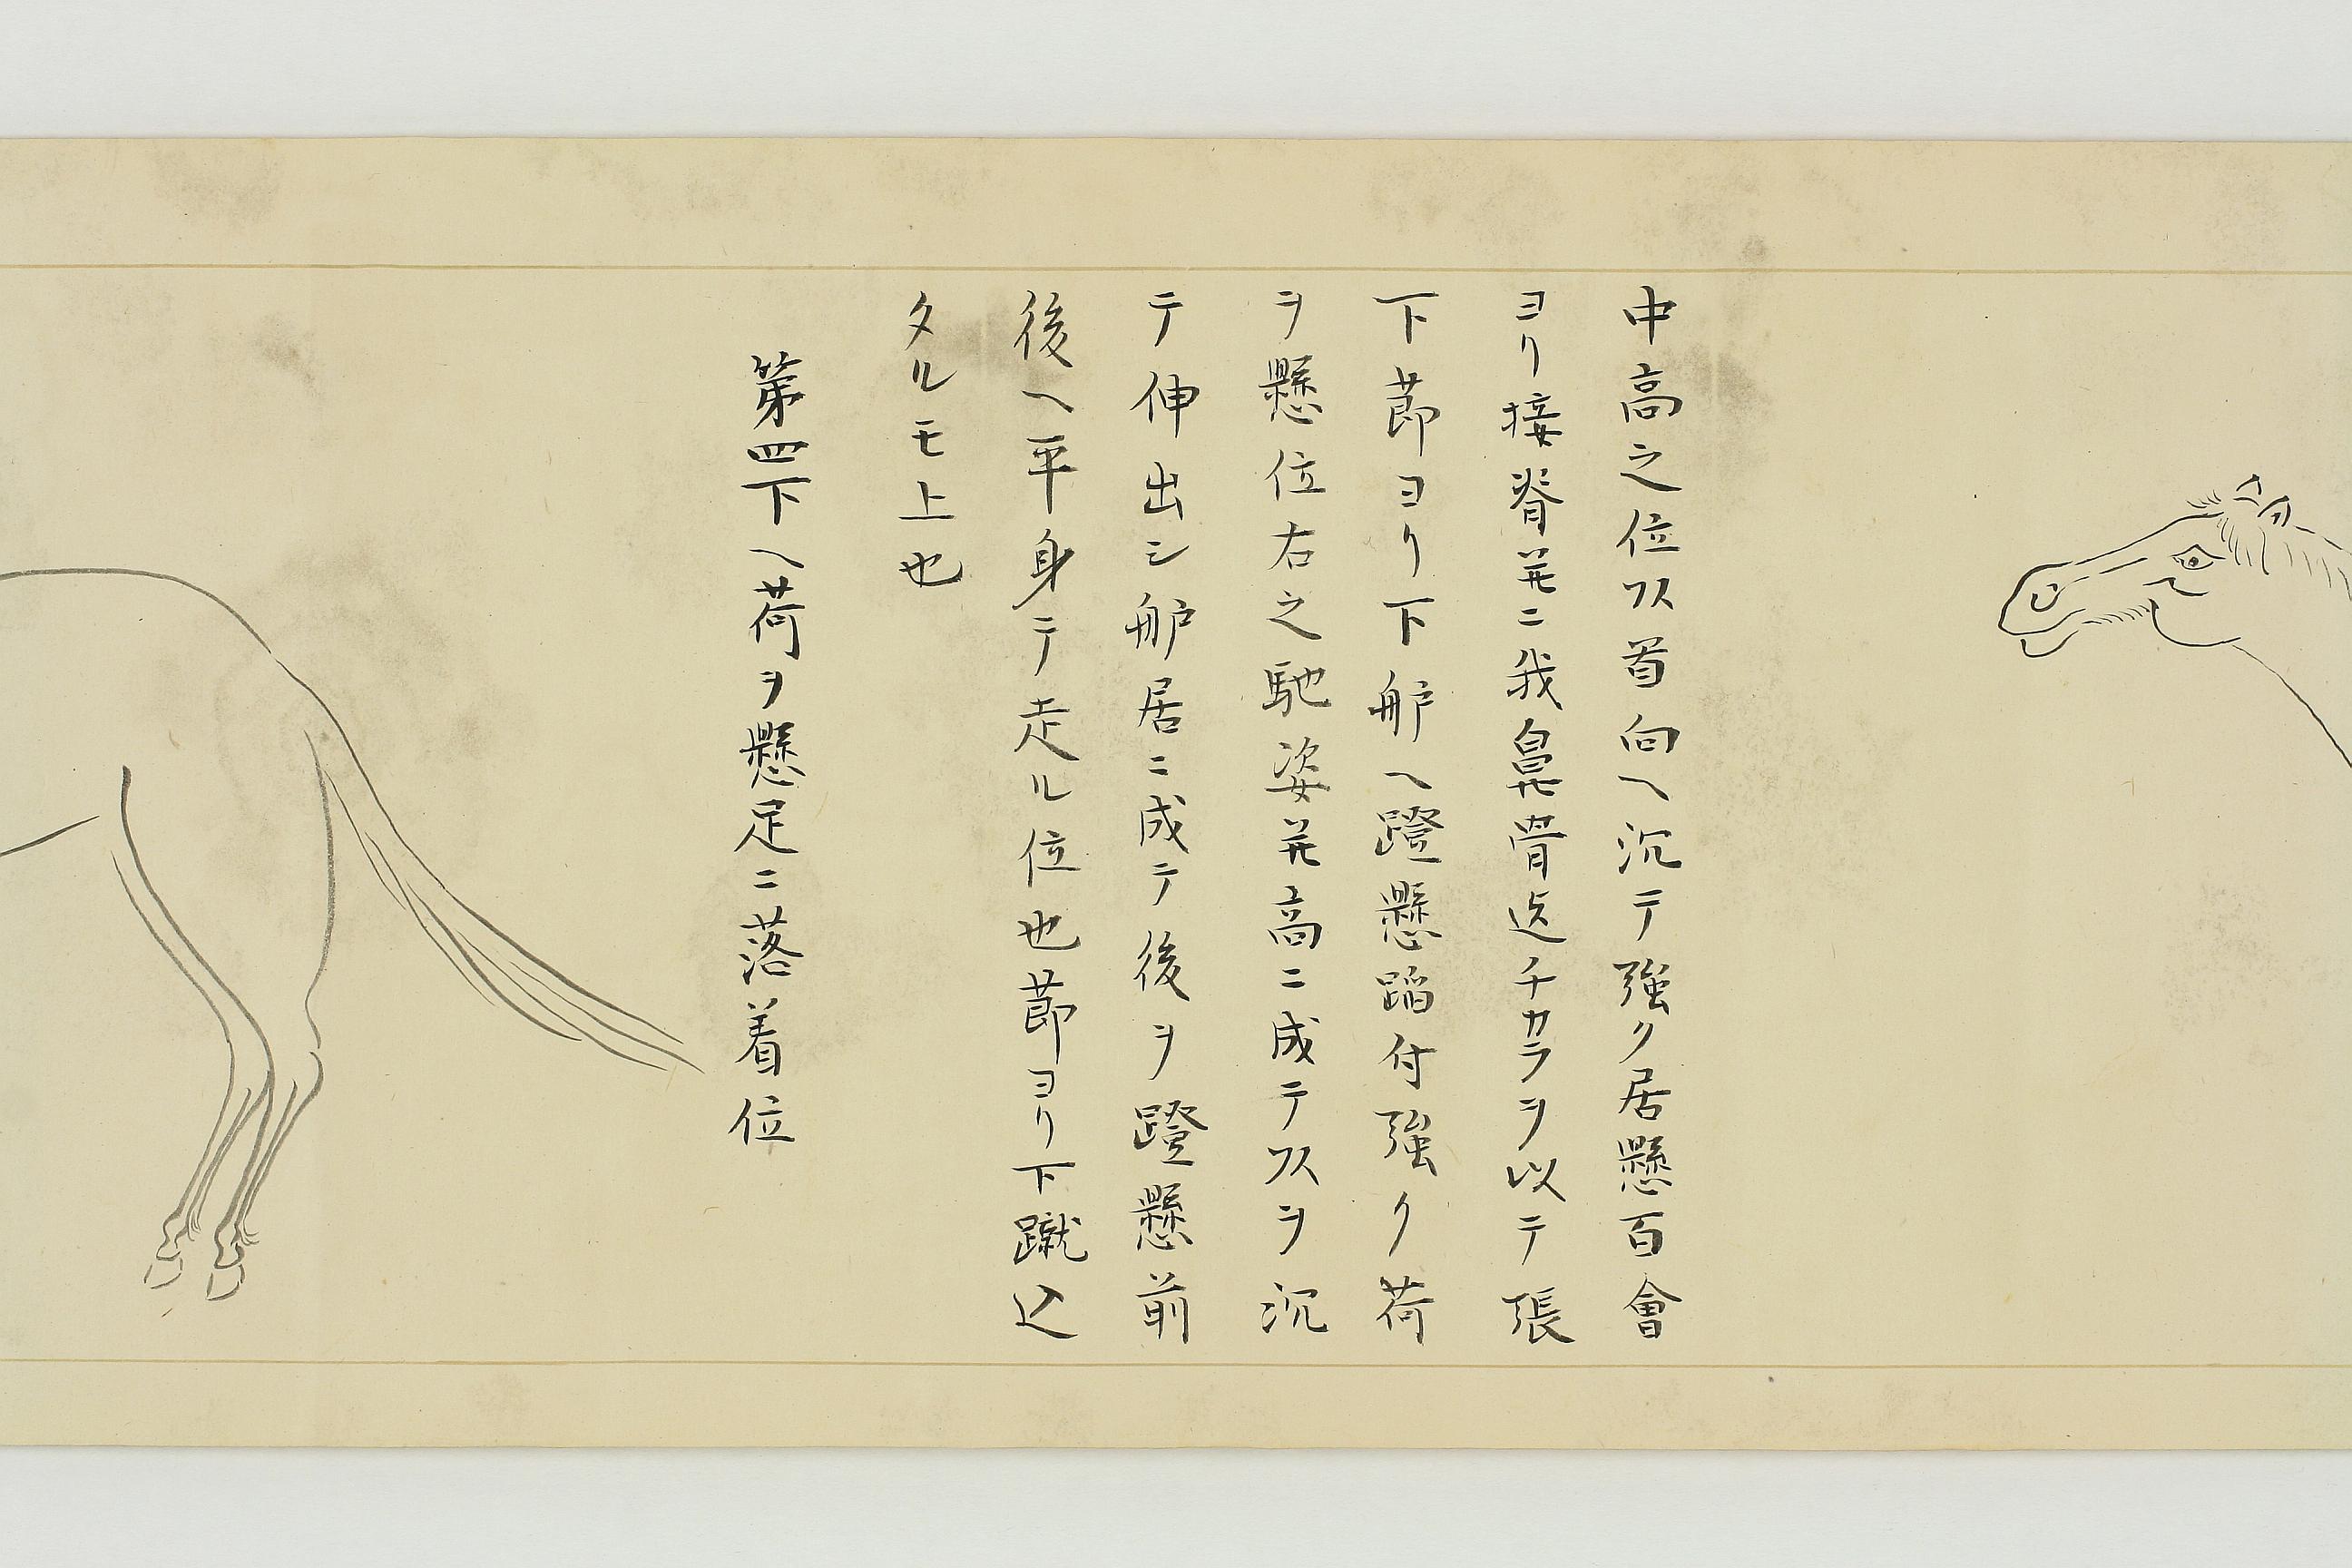 中高之位ヌ首向ヘ沉テ強ク居懸百會
ヨリ接脊並ニ我鼻骨迄チカラヲ以テ張
下莭ヨリ下舮ヘ蹬懸蹈付強ク荷
ヲ懸位右之馳姿並高ニ成テヌヲ沉
テ伸出シ舮居ニ成テ後ヲ蹬懸前
後ヘ平身テ走ル位也莭ヨリ下蹴込
タルモ上也
第四下ヘ荷ヲ懸足ニ落着位